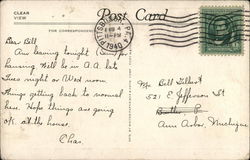 CLEAR
VIEW
Post Card
FOR CORRESPONDENCE
PITTSBURGH PA.
4
PM
1940
Dear Bill
Am leaving tonight
Lansing. Will be in A.A. late
Tues night or Wed noon.
Things getting back to normal
here. Hope things are going
O.K. at the house.
Chas.
Mr. Bill Tilbert
521 E Jefferson St
Butler, P
Ann Arbor, Michigan